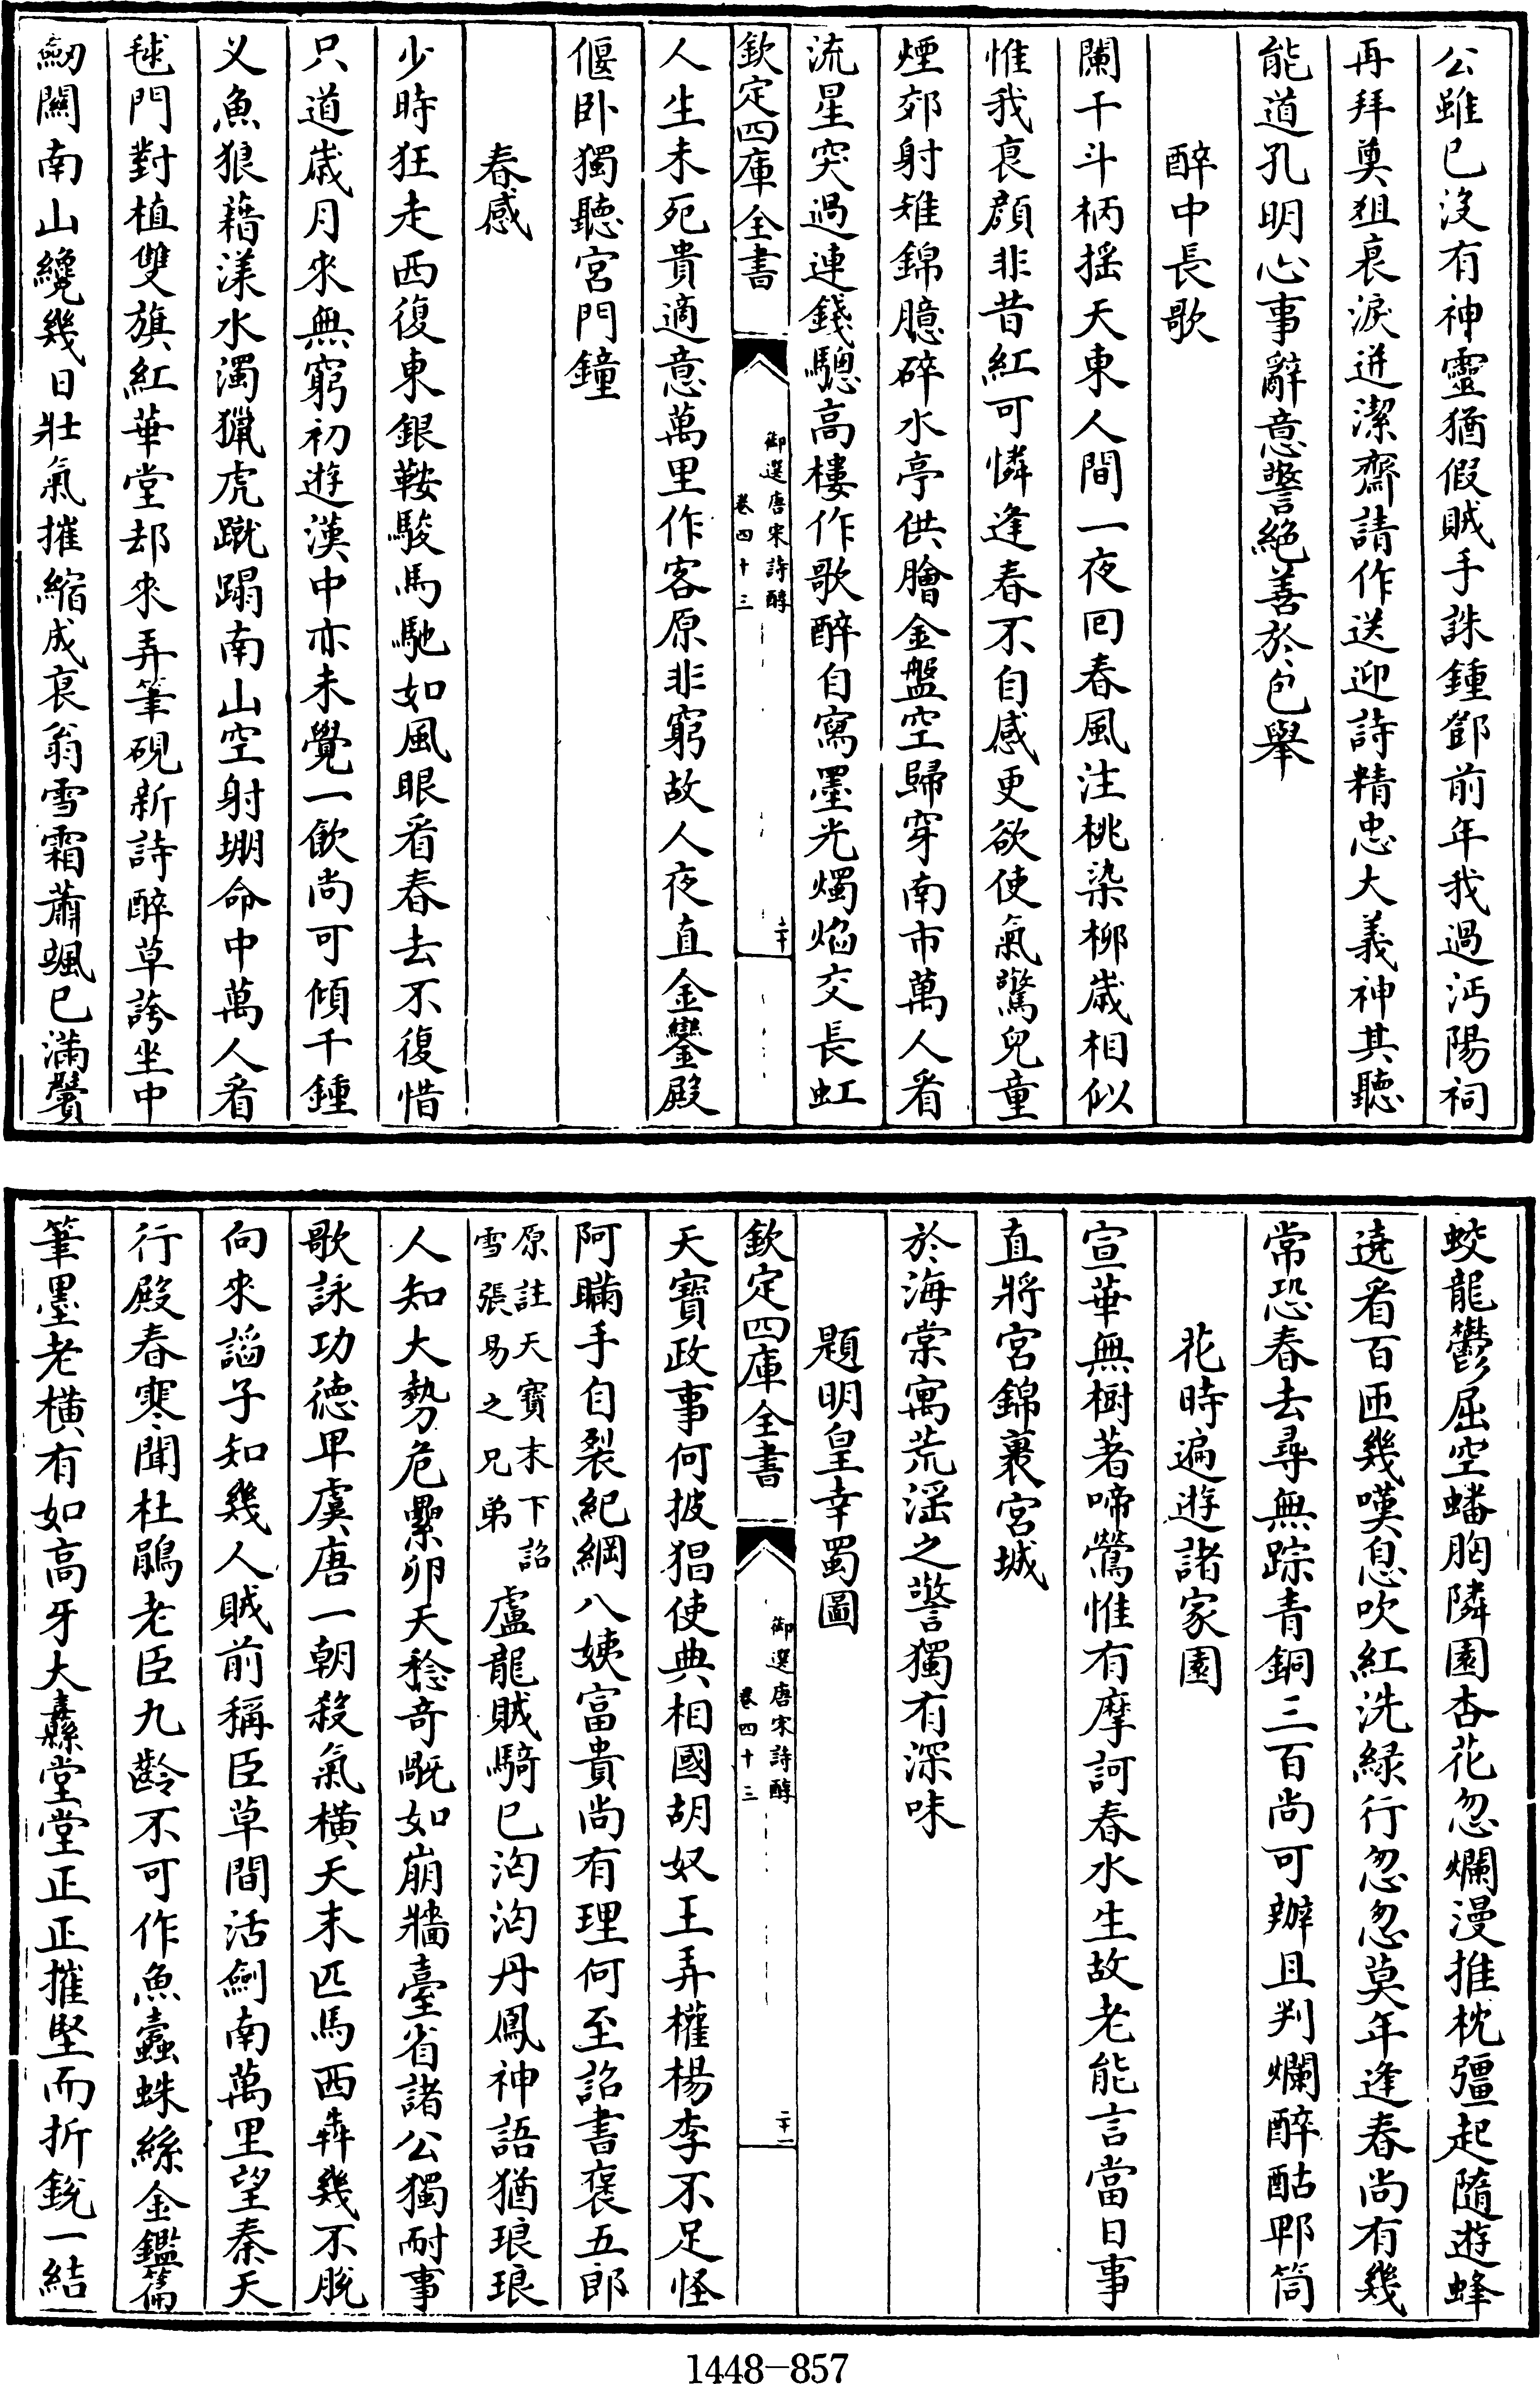 公雖已沒有神靈猶假賊手誅鍾鄧前年我過沔陽祠
再拜奠俎哀淚迸潔齋請作送迎詩精忠大義神其聽
能道孔明心事辭意警絕善於包舉
醉中長歌
闌干斗柄揺天東人間一夜回春風注桃染栁歲相似
惟我衰顔非昔紅可憐逢春不自感更欲使氣驚兒童
煙郊射雉錦臆碎水亭供膾金盤空歸穿南市萬人看
流星突過連錢驄高樓作歌醉自寫墨光燭焰交長虹
欽定四庫全書
御選唐宋詩醇
卷四十三
二十
人生未死貴適意萬里作客原非窮故人夜直金鑾殿
偃卧獨聽宮門鐘
春感
少時狂走西復東銀鞍駿馬馳如風眼看春去不復惜
只道歲月來無窮初遊漢中亦未覺一飲尚可傾千鍾
义魚狼藉漾水濁獵虎蹴蹋南山空射堋命中萬人看
毬門對植雙旗紅華堂却來弄筆硯新詩醉草誇坐中
劒關南山纔幾日壯氣摧縮成衰翁雪霜蕭颯已滿鬢
蛟龍鬱屈空蟠胸隣園杏花忽爛漫推枕彊起隨遊蜂
遶看百匝幾嘆息吹紅洗綠行忽忽莫年逢春尚有幾
常恐春去尋無踪青銅三百尚可辦且判爛醉酤郫筒
花時遍遊諸家園
宣華無樹著啼鶯惟有摩訶春水生故老能言當日事
直將宮錦裹宮城
於海棠寓荒淫之警獨有深味
題明皇幸蜀圖
欽定四庫全書
御選唐宋詩醇
卷四十三
二十一
天寶政事何披猖使典相國胡奴王弄權楊李不足怪
阿瞞手自裂紀綱八姨富貴尚有理何至詔書褒五郎
原註天寶末下詔
雪張易之兄弟
盧龍賊騎已洶洶丹鳳神語猶琅琅
人知大勢危纍卵天稔奇旤如崩牆臺省諸公獨耐事
歌詠功德卑虞唐一朝殺氣橫天末匹馬西犇幾不脫
向來謟子知幾人賊前稱臣草間活劍南萬里望秦天
行殿春寒聞杜鵑老臣九齡不可作魚蠹蛛絲金鑑篇
筆墨老橫有如高牙大纛堂堂正正摧堅而折銳一結
1448-857